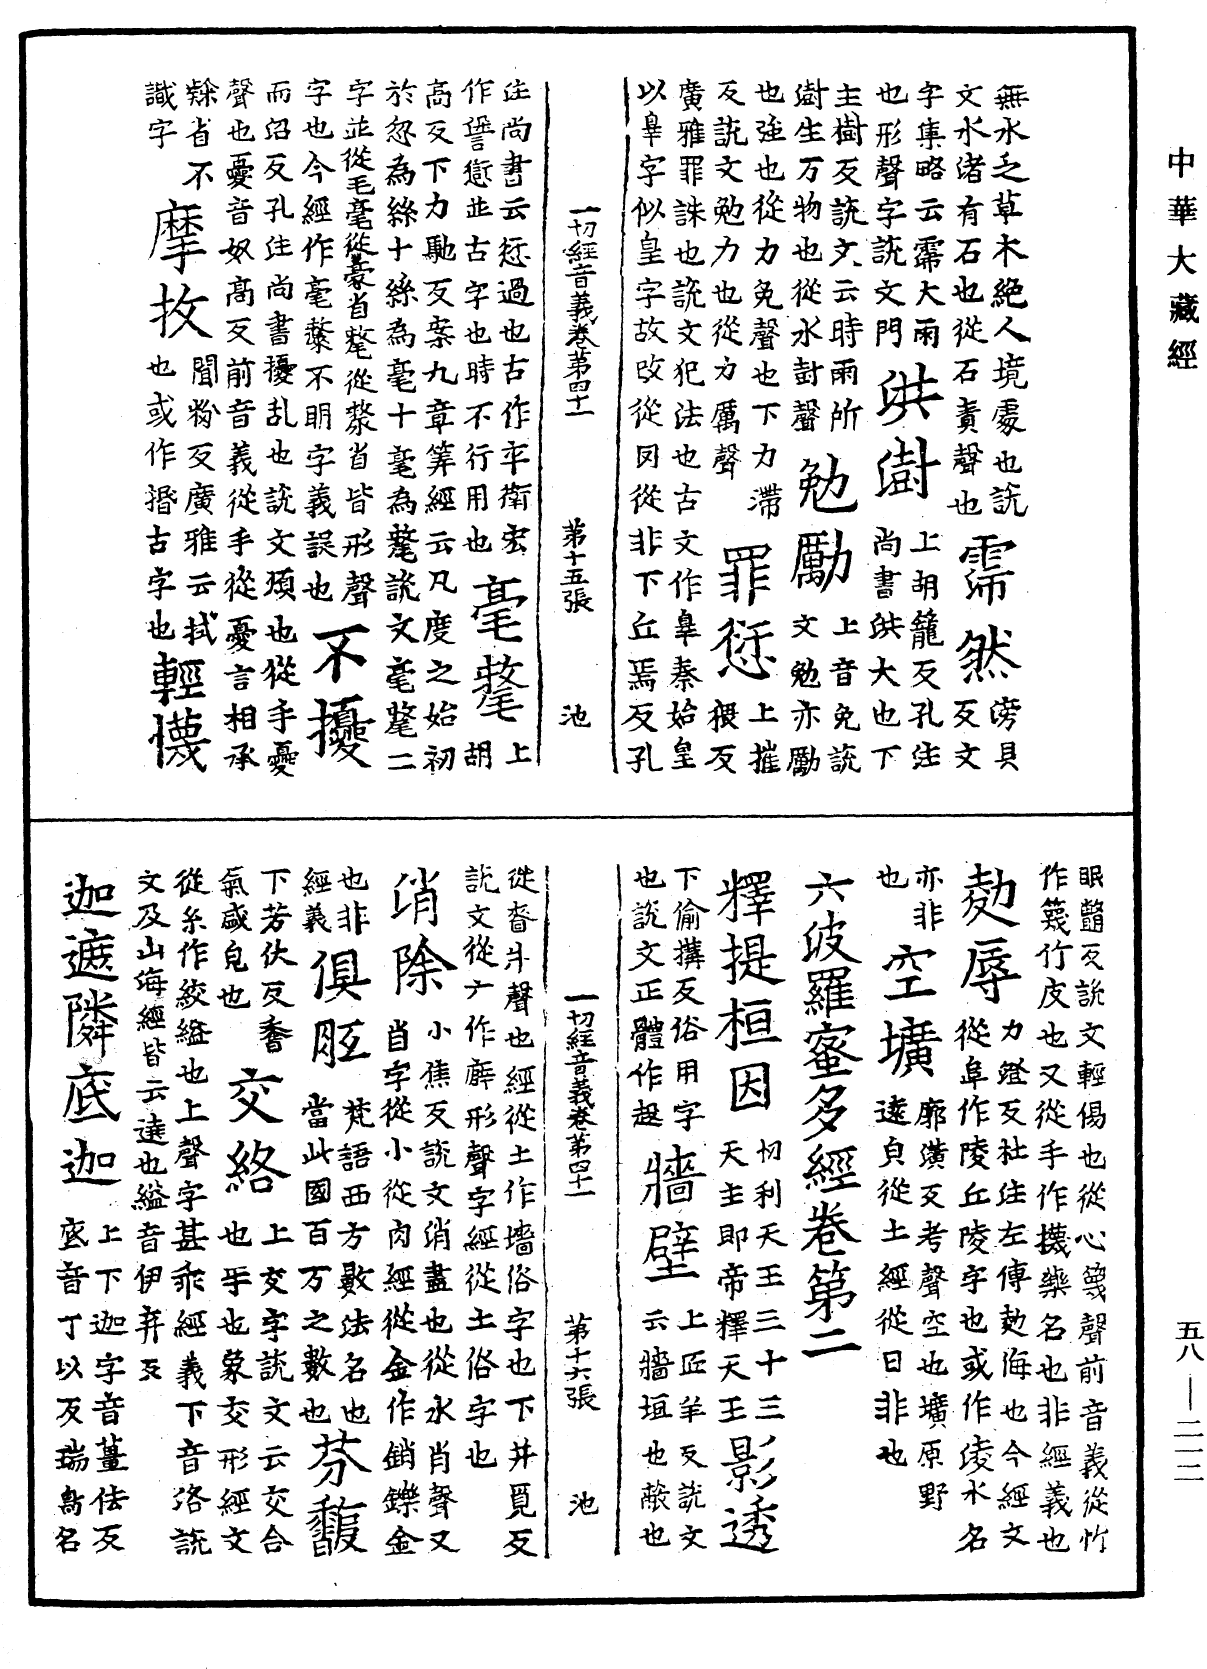 中華大藏經
無水之草木絕人境處也說
文水渚有石也從石責聲也
霈然
滂貝反文
字集略云霈大雨
也形聲字說文門
洪澍
上胡籠反孔注
尚書洪大也下
主樹反說文云時雨所
澍生万物也從水尌聲
勉勵
上音免說
文勉亦勵
也強也從力免聲也下力滯
反說文勉力也從力厲聲
罪愆
上摧
猥反
廣雅罪誅也說文犯法也古文作辠秦始皇
以辠字似皇字故改從罔從非下丘焉反孔
一切經音義卷第四十一 第十五張 池
注尚書云愆過也古作䇂衛宏
作諐愆並古字也時不行用也
毫氂
上胡
高反下力馳反案九章筭經云凡度之始初
於忽為絲十絲為毫十毫為氂說文毫氂二
字並從毛毫從豪省氂從𠩺省皆形聲
字也今經作毫釐不明字義誤也
不擾
而沼反孔注尚書擾乱也說文煩也從手憂
聲也憂音奴高反前音義從手從憂言相承
𣜩省不
識字
摩抆
聞粉反廣雅云拭
也或作㨉古字也
輕懱
眠鼈反說文輕傷也從心蔑聲前音義從竹
作篾竹皮也又從手作㩢藥名也非經義也
勊辱
力蹬反杜注左傳勊侮也今經文
從阜作陵丘陵字也或作淩水名
亦非
也
空壙
廓潢反考聲空也壙原野
遠皃從土經從日非也
六波羅蜜多經卷第二
釋提桓因
忉利天王三十三
天主即帝釋天王
影透
下偷搆反俗用字
也說文正體作趗
牆壁
上匠羊反說文
云牆垣也蔽也
從嗇爿聲也經從土作墻俗字也下并覓反
說文從广作廦形聲字經從土俗字也
消除
小焦反說文消盡也從水肖聲又
肖字從小從肉經從金作銷鑠金
也非
經義
俱胝
梵語西方數法名也
當此國百万之數也
芬馥
下芳伏反香
氣盛皃也
交絡
上交字說文云交合
也㸦也象交形經文
從糸作絞縊也上聲字甚乖經義下音洛說
文及山海經皆云遶也縊音伊弃反
迦遮隣底迦
上下迦字音薑佉反
底音丁以反瑞鳥名
一切經音義卷第四十一 第十六張 池
五八—二一二